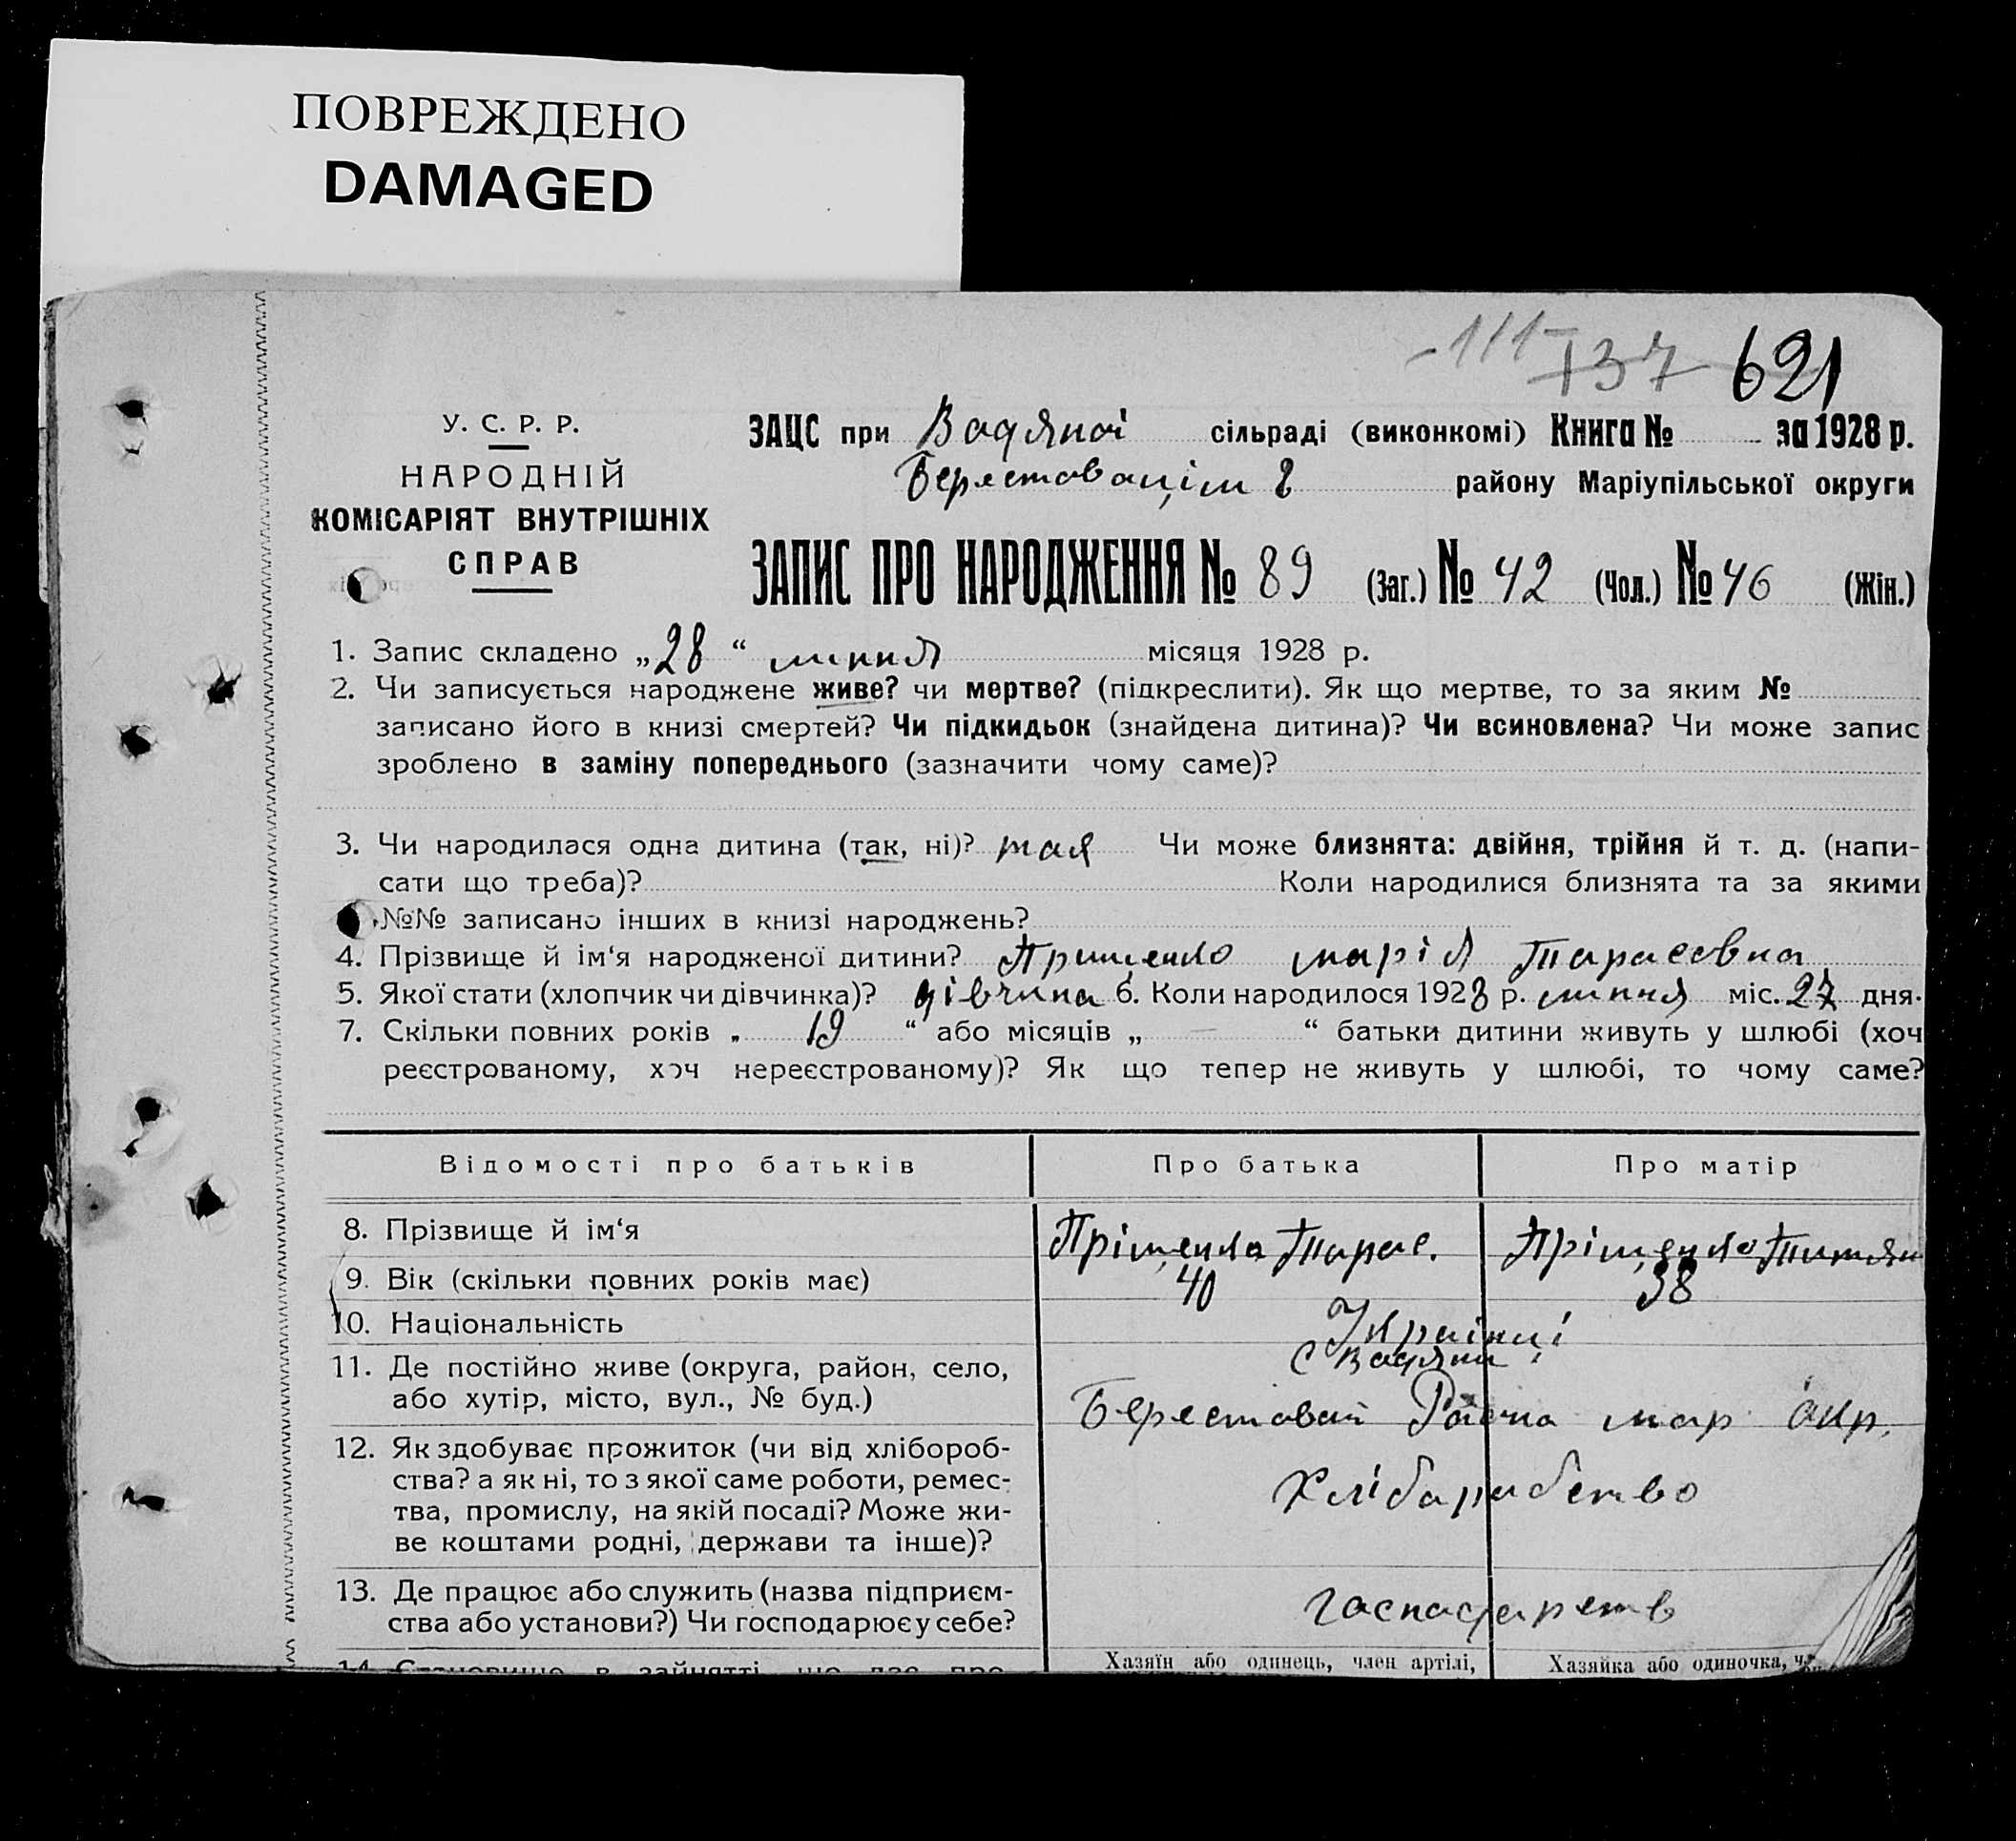 ПОВРЕЖДЕНО
DAMAGED
-111-
137 621
У. С. Р. Р.
НАРОДНІЙ
КОМІСАРІЯТ ВНУТРІШНІХ
СПРАВ
ЗАЦС при Водяної сільраді (виконкомі) Книга № за 1928 р.
району Маріупільської округи
ЗАПИС ПРО НАРОДЖЕННЯ № 89 (Заг.) № 42 (Чол.) № 46 (Жін.)
1. Запис складено „28“ липня місяця 1928 р.
2. Чи записується народжене живе? чи мертве? (підкреслити). Як що мертве, то за яким №
записано його в книзі смертей? Чи підкидьок (знайдена дитина)? Чи всиновлена? Чи може запис
зроблено в заміну попереднього (зазначити чому саме)?
3. Чи народилася одна дитина (так, ні)? Чи може близнята: двійня, трійня й т. д. (напи-
сати що треба)? Коли народилися близнята та за якими
№№ записано інших в книзі народжень?
4. Прізвище й ім‘я народженої дитини? Прищенко марія Тарасовна
5. Якої стати (хлопчик чи дівчинка)? дівчина 6. Коли народилося 1928 р. липня міс. 27 дня.
7. Скільки повних років „ 19 “ або місяців „ — “ батьки дитини живуть у шлюбі (хоч
реєстрованому, хоч нереєстрованому)? Як що тепер не живуть у шлюбі, то чому саме?
Відомості про батьків Про батька Про матір
8. Прізвище й ім‘я Пріщенко Тарас. Пріщенко Титян
9. Вік (скільки повних років має) 40 38
10. Національність Українці
11. Де постійно живе (округа, район, село, с Водяна
або хутір, місто, вул., № буд.) Берестовай Району мар окр.
12. Як здобуває прожиток (чи від хлібороб-
ства? а як ні, то з якої саме роботи, ремес- Хлібаробство
тва, промислу, на якій посаді? Може жи-
ве коштами родні, держави та інше)?
13. Де працює або служить (назва підприєм- гаспадарств
ства або установи?) Чи господарює у себе?
14. Становище в зайнятті, що дає про-
Хазяїн або одинець, член артілі, Хазяйка або одиночка,